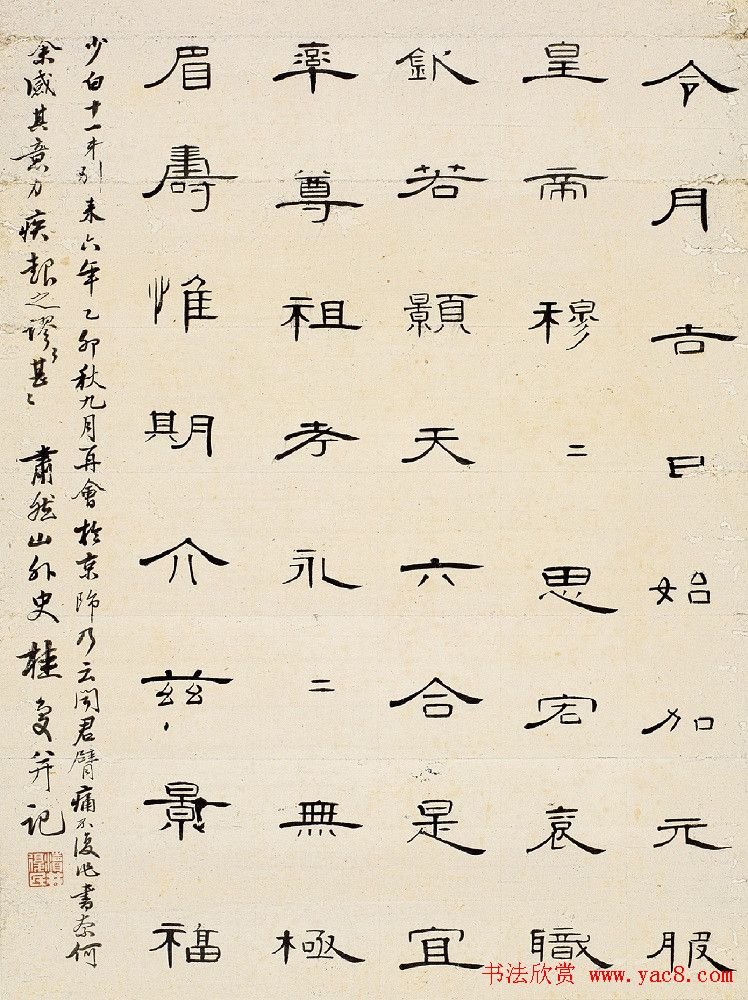 令月吉日始加元服
皇帝穆二思宏衮職
欽若顥天六合是宜
率尊祖考永二無極
眉壽惟期介茲景福
少白十一弟別來六年乙卯秋九月再會於京師乃云聞君臂痛不復作書奈何
余感其意力疾報之謬〻甚〻 肅然山外史桂馥并記
书法欣赏 www.yac8.com